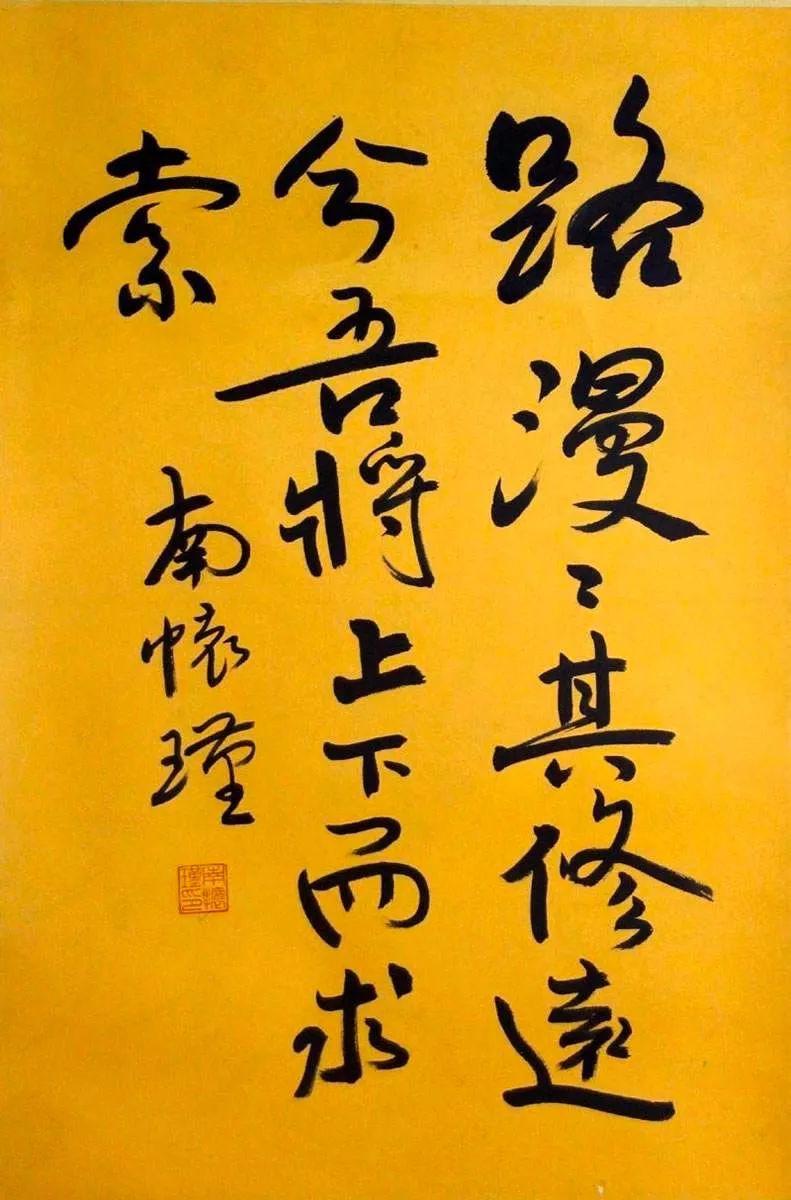 路漫〻其修遠
兮吾將上下而求
索
南懷瑾
南懷瑾印